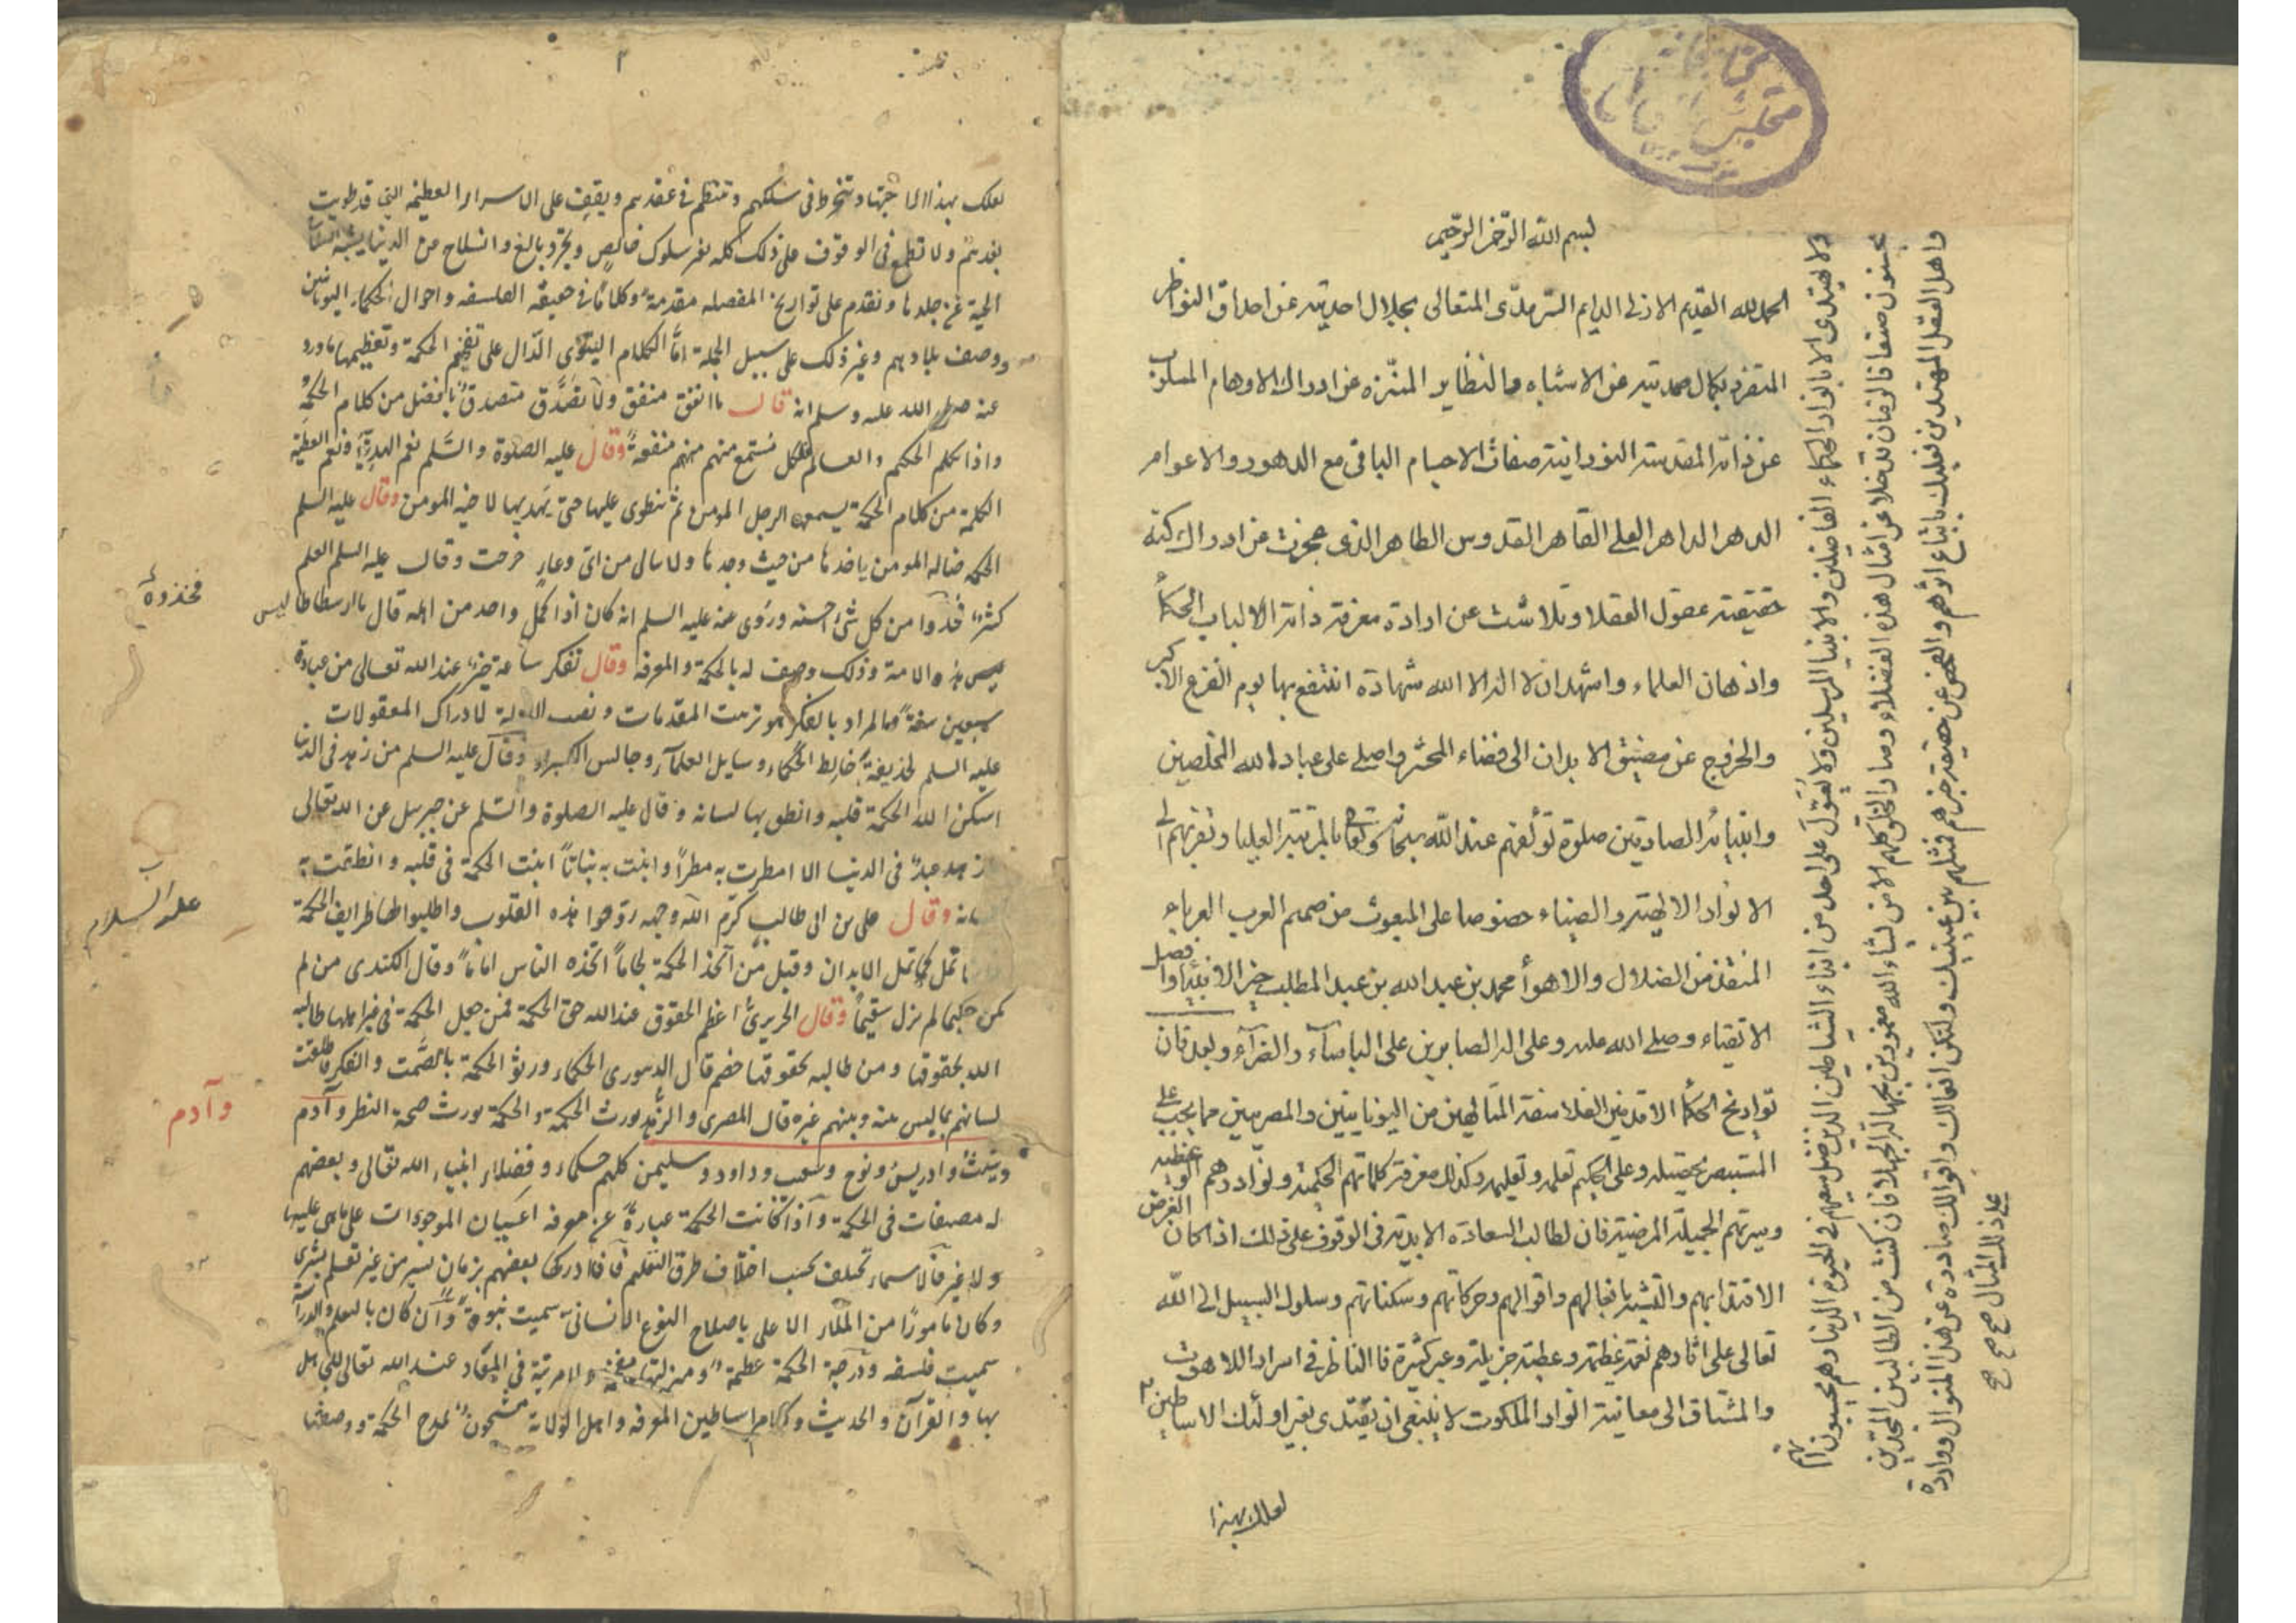 بسم الله الرحمن الرحيم
الحمد لله القديم الازلى الدايم السرمدى المتعالى بجلال احديته عن احداق النواظر
المتفرد بكمال صمديته عن الاشباه والنظاير المنزه عن ادراك الاوهام المسلوب
عن ذاته المقدسة النورانية صفات الاجسام الباقى مع الدهور والاعوام
الدهر الداهر العلى القاهر القدوس الطاهر الذى عجزت عن ادراك كنه
حقيقته عقول العقلا وتلاشت عن ارادة معرفة ذاته الالباب الحكما
واذهان العلماء واشهد ان لا اله الا الله شهادة انتفع بها يوم الفزع الاكبر
والخروج عن مضيق الابدان الى فضاء المحشر واصلى على عباد الله المخلصين
وانبيائه الصادقين صلوة تؤلفهم عند الله سبحانه وتعالى بالمرتبة العليا وتقربهم الى
الانوار الالهية والضياء خصوصا على المبعوث من صميم العرب العرباء
المنقذ من الضلال والاهوأ محمد بن عبد الله بن عبد المطلب خير الانبياء وافضل
الاتقياء وصلى الله عليه وعلى اله الصابرين على الباساء والضرآء وبعد فان
تواريخ الحكما الاقدمين الفلاسفة المتالهين من اليونانيين والمصريين مما يجب على
المستبصر تحصيله وعلى الحكيم تعلمه وتعليمه وكذلك معرفة كلماتهم الحكمية ونوادرهم الوعظية
وسيرتهم الجميلة المرضية فان لطالب السعادة الابدية فى الوقوف على ذلك اذا كان الغرض
الاقتدا بهم والتشبه بافعالهم واقوالهم وحركاتهم وسكناتهم وسلوك السبيل الى الله
تعالى على اثارهم نعمة عظيمة وعطية جزيلة وعبر كثيرة فالناظر فى اسرار اللاهوت
والمشتاق الى معاينة انوار الملكوت لا ينبغى ان يقتدى بغير اولئك الاساطين
لعلك بهذا
ولا يهتدى الا بانوار الحكماء الفاضلين والانبيا المرسلين ولا يعول على احد من ابناء الشياطين الذين ضل سعيهم فى الحيوة الدنيا وهم يحسبون انهم
يحسنون صنعا فالزمان قد خلا عن امثال هذه الفضلاء وصار الخلق كلهم الا من يشاء الله مغمورين بجهالة الجهلا فان كنت من الطالبين المجدين
واهل العقل المهتدين فعليك باتباع اثرهم والفحص عن حقيقة خبرهم فمثلهم بين عينيك ولتكن افعالك واقوالك صادرة عن هذا المنوال وواردة
على ذلك المثال صح صح صح
لعلك بهذا الاجتهاد تنخرط فى سلكهم وتنتظم فى عقدهم ويقف على الاسرار العظيمة التى قد طويت
بعدهم ولا تطمع فى الوقوف على ذلك كله بغير سلوك خالص وتجرد بالغ وانسلاخ من الدنيا يشبه انسلاخ
الحية عن جلدها ونقدم على تواريخ المفصلة مقدمة وكلاما فى حقيقة الفلسفة واحوال الحكماء اليونانيين
ووصف بلادهم وغير ذلك على سبيل الجملة اما الكلام النبوى الدال على تفخيم الحكمة وتعظيمها ما ورد
عنه صلى الله عليه وسلم انه قال ما انفق منفق ولا تصدق متصدق بافضل من كلام الحكمة
واذا تكلم الحكيم والعالم فلكل مستمع منهم منهم منفعة وقال عليه الصلوة والسلم نعم الهدية ونعم العطية
الكلمة من كلام الحكمة يسمعها الرجل المومن ثم ينطوى عليها حتى يهديها لاخيه المومن وقال عليه السلم
الحكمة ضالة المومن ياخذها من حيث وجدها ولا يبالى من اى وعاء خرجت وقال عليه السلم العلم
كثير فخذوا من كل شئ احسنه وروى عنه عليه السلم انه كان اذا كمل واحد من اهله قال يا ارسطاطاليس
هذه الامة وذلك وصف له بالحكمة والمعرفة وقال تفكر ساعة خير عند الله تعالى من عبادة
سبعين سنة فالمراد بالفكر هو ترتيب المقدمات ونصب الادلة لادراك المعقولات
عليه السلم لحذيفة خالط الحكماء وسايل العلمآء وجالس الكبراء وقال عليه السلم من زهد فى الدنيا
اسكن الله الحكمة قلبه وانطق بها لسانه وقال عليه الصلوة والسلم عن جبرييل عن الله تعالى
زهد عبد فى الدنيا الا امطرت به مطرا وانبت به نباتا انبت الحكمة فى قلبه وانطقت به
وقال على بن ابى طالب كرم الله وجهه روحوا هذه القلوب واطلبوا لها ظرايف الحكمة
تمل كما تمل الابدان وقيل من اتخذ الحكمة لجاما اتخذه الناس اماما وقال الكندى من لم
يكن حكيما لم يزل سقيما وقال الحريرى اعظم الحقوق عند الله حق الحكمة فمن جعل الحكمة فى غير اهلها طالبه
الله بحقوقها ومن طالبه بحقوقها خصم قال الدينورى الحكماء ورثوا الحكمة بالصمت والفكر
لسانهم بما ليس منه وبينهم غيره قال المصرى والزهد يورث الحكمة والحكمة تورث صحة النظر وآدم
وشيث وادريس ونوح وشعيب وداود وسليمن كلهم حكماء وفضلاء انبياء الله تعالى وبعضهم
له مصنفات فى الحكمة واذا كانت الحكمة عبارة عن معرفة اعيان الموجودات على ما هى عليها
ولا غير فالاسماء تختلف بحسب اختلاف طرق التعليم فما ادركها بعضهم بزمان يسير من غير تعلم بشرى
وكان مامورا من الملاء الاعلى باصلاح النوع الانسانى سميت نبوة وان كان بالتعلم والدراسة
سميت فلسفة ودرجة الحكمة عظيمة ومنزلتها والمرتبة فى المعاد عند الله تعالى للجاهل
بها والقرآن والحديث وكلام اساطين المعرفة واهل الولاية مشحون بمدح الحكمة ووصفها
فخذوه
عليه السلام
وآدم